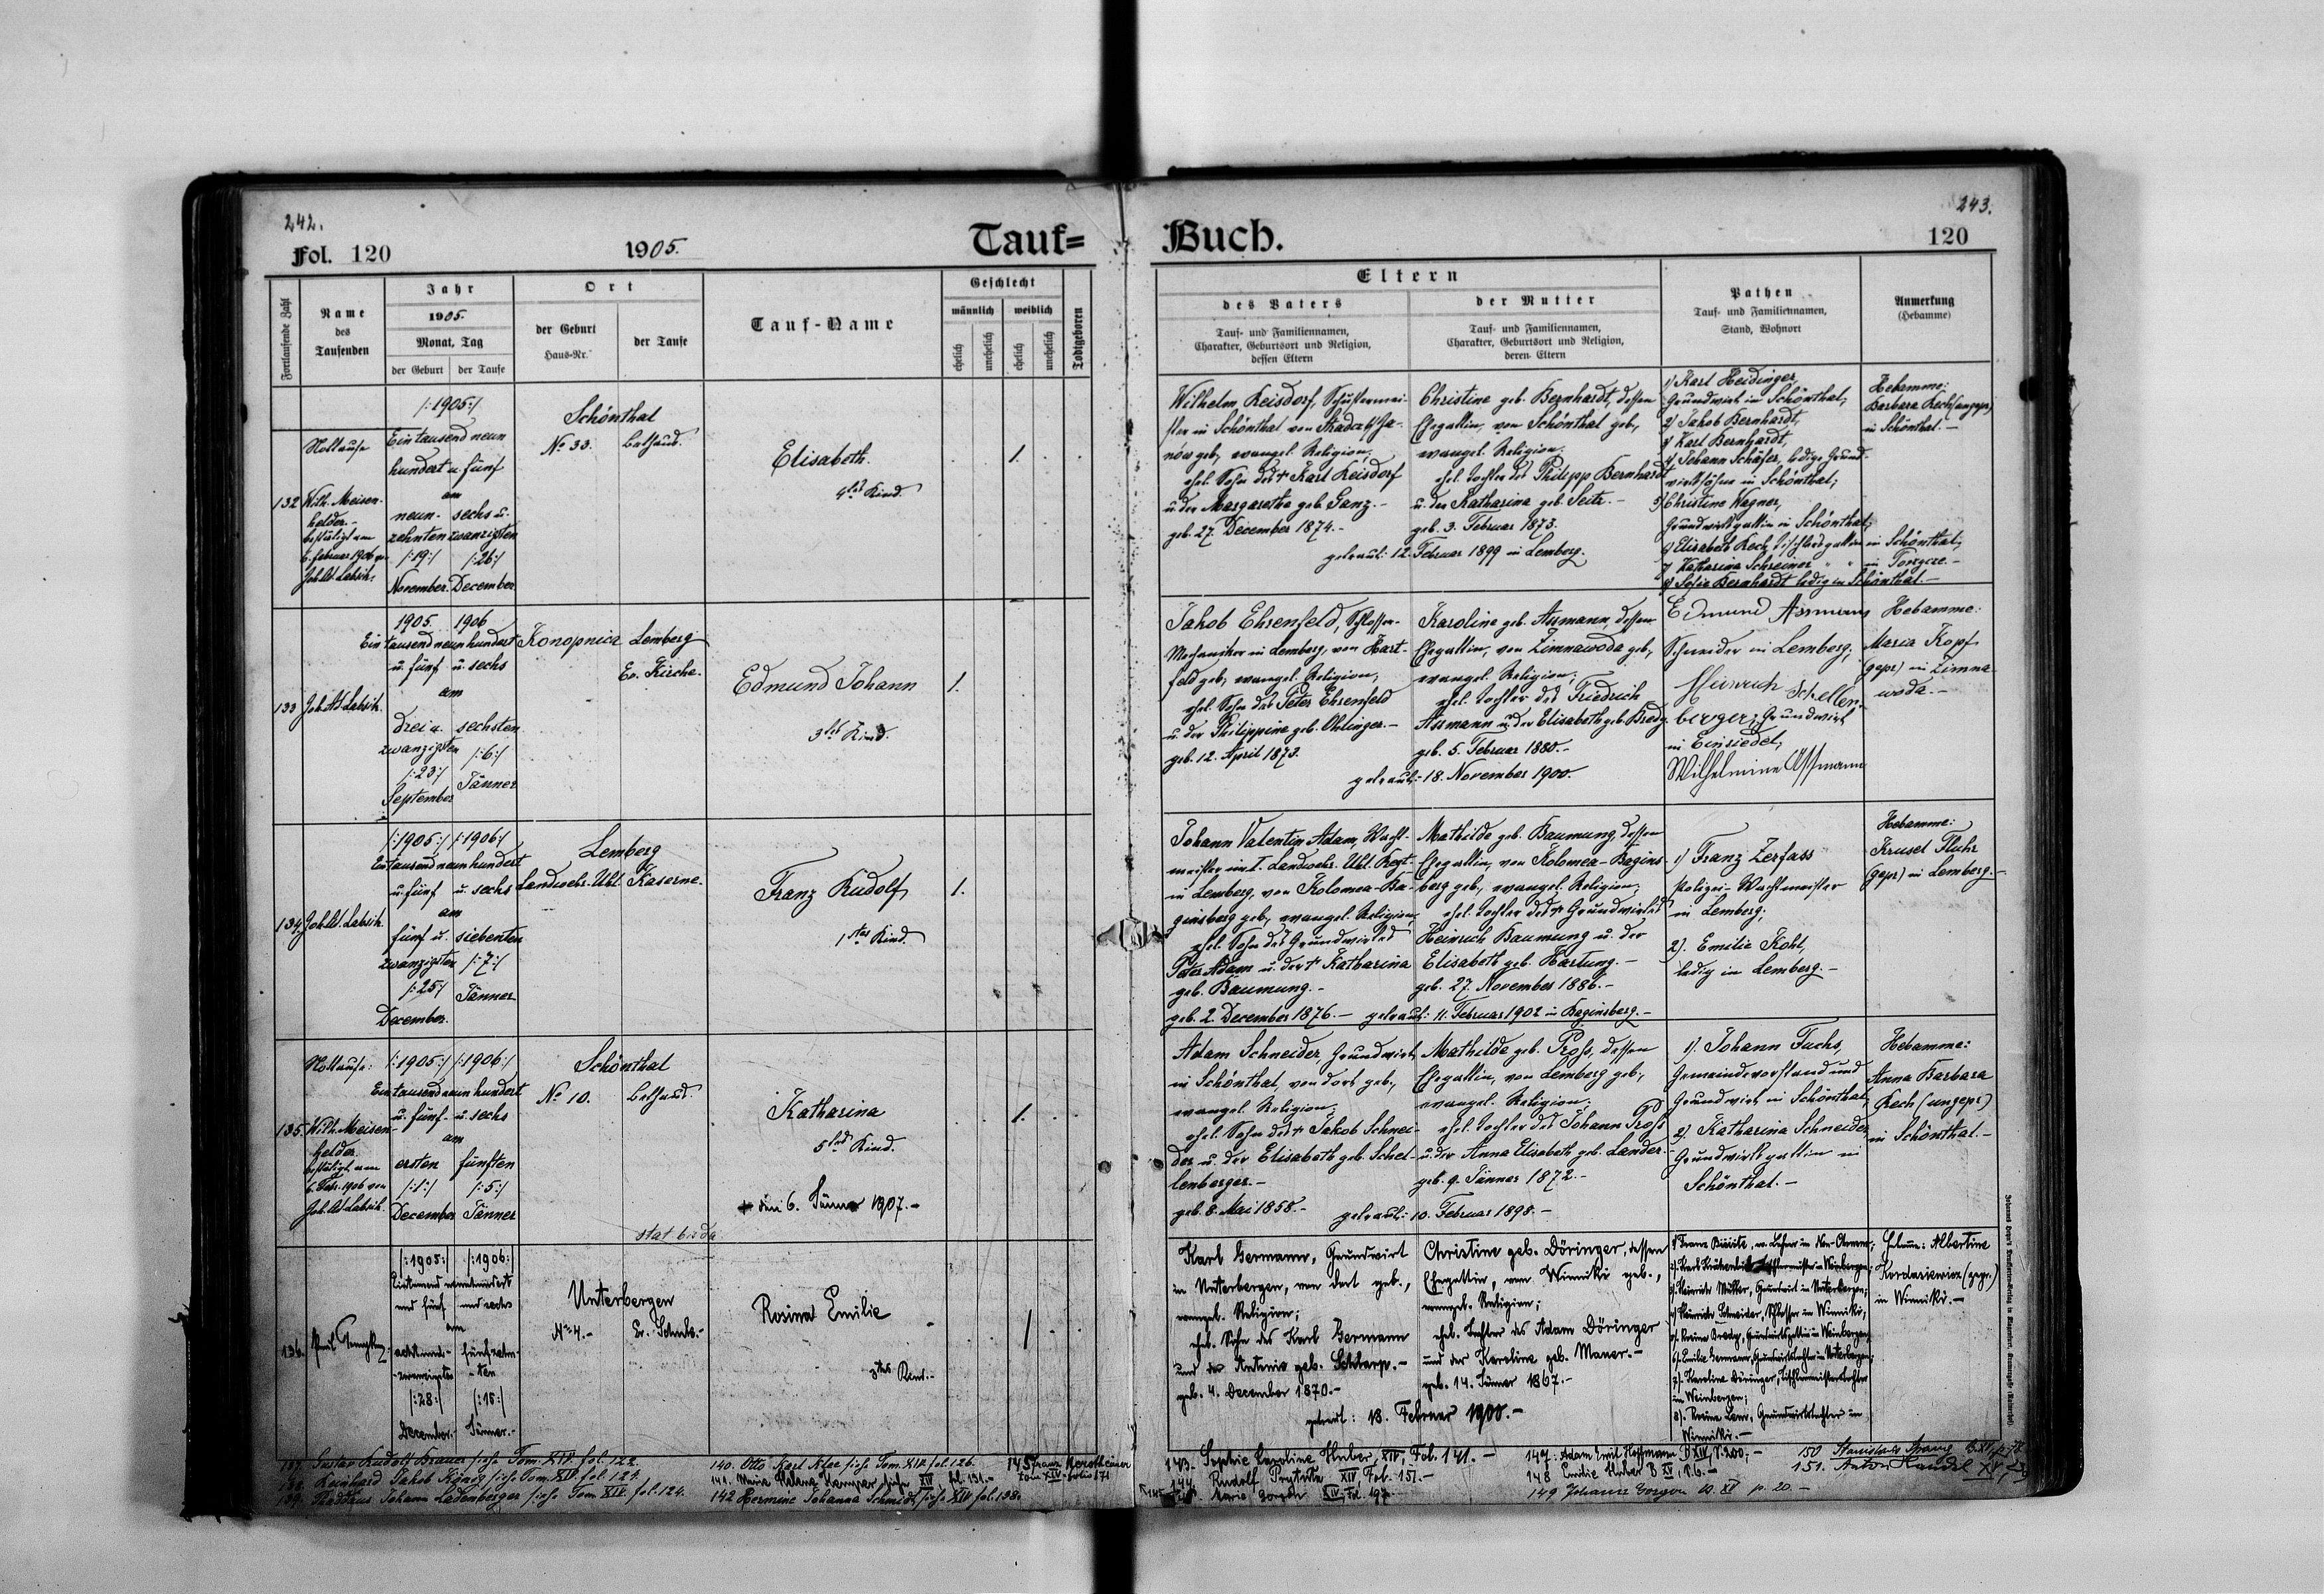 242.
Fol. 120
1905.
Tauf=
Buch.
243.
120
Fortlaufende Zahl
Name
des
Taufenden
Jahr
1905.
Monat, Tag
der Geburt
der Taufe
Ort
der Geburt
Haus-Nr.
der Taufe
Tauf-Name
Geschlecht
männlich
weiblich
ehelich
unehelich
ehelich
unehelich
Todtgeboren
Eltern
des Vaters
Tauf- und Familiennamen,
Charakter, Geburtsort und Religion,
dessen Eltern
der Mutter
Tauf- und Familiennamen,
Charakter, Geburtsort und Religion,
deren Eltern
Pathen
Tauf- und Familiennamen,
Stand, Wohnort
Anmerkung
(Hebamme)
132
Nottaufe
Wilh. Meisen-
helder.-
bestätigt am
6. Februar 1906 von
Joh. Ad. Labsik.
/:1905:/
Eintausend neun
hundert u. fünf
am
neun-
zehnten
/:19:/
November
sechs u.
zwanzigsten
/:26:/
December
Schönthal
No 33.
Bethaus.
Elisabeth.
4tes Kind.
1.
Wilhelm Reisdorf, Schustermei-
ster in Schönthal von
now geb., evangel. Religion,
ehel. Sohn des † Karl Reisdorf
u. der Margaretha geb. Ganz.-
geb. 27. December 1874.-
Christine geb. Bernhardt, dessen
Ehegattin, von Schönthal geb.,
evangel. Religion;
ehel. Tochter des Philipp Bernhardt
u. der Katharina geb. Seitz.-
geb. 3. Februar 1873.
getraut: 12. Februar 1899 in Lemberg.
1) Karl Heidinger,
Grundwirt in Schönthal,
2) Jakob Bernhardt,
3) Karl Bernhardt,
4) Johann Schäfer, ledige Grund-
wirtssöhne in Schönthal;
5) Christine Wagner,
Grundwirtsgattin in Schönthal;
6) Elisabeth Kech, Tischlersgattin in Schönthal;
7) Katharina Schreiner " " in
8) Sofie Bernhardt ledig in Schönthal.-
Hebamme:
Barbara Kech (ungepr.)
in Schönthal.-
133
Joh. Ad. Labsik.
1905. 1906
Eintausend neunhundert
u. fünf u. sechs
am
drei u.
zwanzigsten
/:23:/
September
sechsten
/:6:/
Jänner
Konopnica
Lemberg
Ev. Kirche.
Edmund Johann
3tes Kind.
1.
Jakob Ehrenfeld, Schlosser-
Mechaniker in Lemberg, von Hart-
feld geb., evangel. Religion;
ehel. Sohn des Peter Ehrenfeld
u. der Philippine geb. Ohlinger.-
geb. 12. April 1873.
Karoline geb. Assmann, dessen
Ehegattin, von Zimnawoda geb.,
evangel. Religion;
ehel. Tochter des Friedrich
Assmann u. der Elisabeth geb. Bredy.
geb. 5. Februar 1880.-
getraut: 18. November 1900.
Edmund Assmann
Schneider in Lemberg;
Heinrich Schellen-
berger, Grundwirt
in Einsiedel,
Wilhelmine Assmann
Hebamme:
Maria Kopf
(gepr.) in Zimna-
woda.-
134
Joh. Ad. Labsik.
/:1905:/ /:1906:/
Eintausend neunhundert
u. fünf u. sechs
am
fünf u.
zwanzigsten
/:25:/
December.
siebenten
/:7:/
Jänner
Lemberg
Landwehr-Uhl. Kaserne.
Franz Rudolf
1tes Kind.
1.
Johann Valentin Adam, Wacht-
meister im I. Landwehr-Uhl. Regt.
in Lemberg, von Kolomea-Ba-
ginsberg geb., evangel. Religion;
ehel. Sohn des Grundwirtes
Peter Adam u. der † Katharina
geb. Baumung.-
geb. 2. December 1876.-
Mathilde geb. Baumung, dessen
Ehegattin, von Kolomea-Bagins-
berg geb., evangel. Religion;
ehel. Tochter des † Grundwirtes
Heinrich Baumung u. der
Elisabeth geb. Hartung.-
geb. 27. November 1886.-
getraut: 11. Februar 1902 in Baginsberg.-
1) Franz Zerfass
Polizei-Wachtmeister
in Lemberg;
2). Emilie Kohl,
ledig in Lemberg.-
Hebamme:
Fluhr
(gepr.) in Lemberg.-
135.
Nottaufe:
Wilh. Meisen-
helder.
bestätigt am
6. Febr. 1906 von
Joh. Ad. Labsik.
/:1905:/ /:1906:/
Eintausend neunhundert
u. fünf u. sechs
am
ersten
/:1:/
December
fünften
/:5:/
Jänner
Schönthal
No 10.
Bethaus.
Katharina
5tes Kind.
† den 6. Jänner 1907.-
1.
Adam Schneider, Grundwirt
in Schönthal, von dort geb.,
evangel. Religion;
ehel. Sohn des † Jakob Schnei-
der u. der Elisabeth geb. Schel-
lenberger.-
geb. 8. Mai 1858.-
Mathilde geb. Pross, dessen
Ehegattin, von Lemberg geb.,
evangel. Religion;
ehel. Tochter des Johann Pross
u. der Anna Elisabeth geb. Lander.-
geb. 9. Jänner 1872.-
getraut: 10. Februar 1898.-
1). Johann Fuchs,
Gemeindevorstand und
Grundwirt in Schönthal,
2). Katharina Schneider,
Grundwirtsgattin in
Schönthal.-
Hebamme:
Anna Barbara
Kech (ungepr.)
in Schönthal.-
136.
/:1905:/ /:1906:/
Eintausend neunhundert
und fünf und sechs
am
achtund-
zwanzigsten
/:28:/
December.-
fünfzehn-
ten
/:15:/
Jänner.-
Unterbergen
No 4.-
Ev. Schule.-
Rosina Emilie
3tes Kind.-
1
Karl Germann, Grundwirt
in Unterbergen, von dort geb.,
evangel. Religion;
ehel. Sohn des Karl Germann
und der Antonie geb. Schlarp.-
geb. 4. December 1870.-
Christine geb. Döringer, dessen
Ehegattin, von Winniki geb.,
evangel. Religion;
ehel. Tochter des Adam Döringer
und der Karoline geb. Maner.-
geb. 14. Jänner 1867.-
getraut: 13. Februar 1900.-
3). Heinrich Müller, Grundwirt in Unterbergen;
4) Heinrich Schneider, Schlosser in Winniki,
5). Rosina Bredy, Grundwirtsgattin in Weinbergen,
6). Emilie Germann, Grundwirtstochter in Unterbergen;
7). Karoline Döringer, Tischlermeisterstochter
in Weinbergen;
8). Grundwirtstochter in
Winniki.-
Hebamme: Albertine
Kordasiewicz (gepr.)
in Winniki.-
137. Gustav Rudolf Brauer siehe Tom. XIV. fol. 122.
138. Reinhard Jakob König siehe Tom. XIV. fol. 124.
139. Thaddäus Johann Ladenberger siehe Tom XIV. fol. 124.
140. Otto Karl Klee siehe Tom. XIV. fol. 126.
141. Maria Helena siehe XIV fol. 131.-
142 Hermine Johanna Schmidt, siehe XIV fol. 138.
145
Tom XIV folio 171
143. Sophie Karoline Huber, XIV, Fol. 141.-
144. Rudolf XIV, Fol. 151.-
XIV, Fol. 197.-
147. Adam Emil Hoffmann B XIV, P. 200,-
148 Emilie Huber B XV, P. 6.-
149 Johann XV p. 20.-
150 Stanislaus
151. Anton XV,